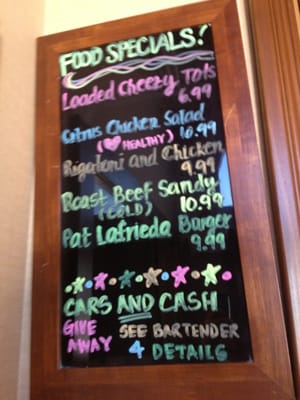 FOOD SPECIALS!
Loaded Cheezy Tots
6.99
Citrus Chicken Salad
(♥ HEALTHY) 10.99
Rigatoni and Chicken
9.99
Roast Beef Sandy
(COLD) 10.99
Pat Lafrieda Burger
9.99
CARS AND CASH
GIVE SEE BARTENDER
AWAY 4 DETAILS